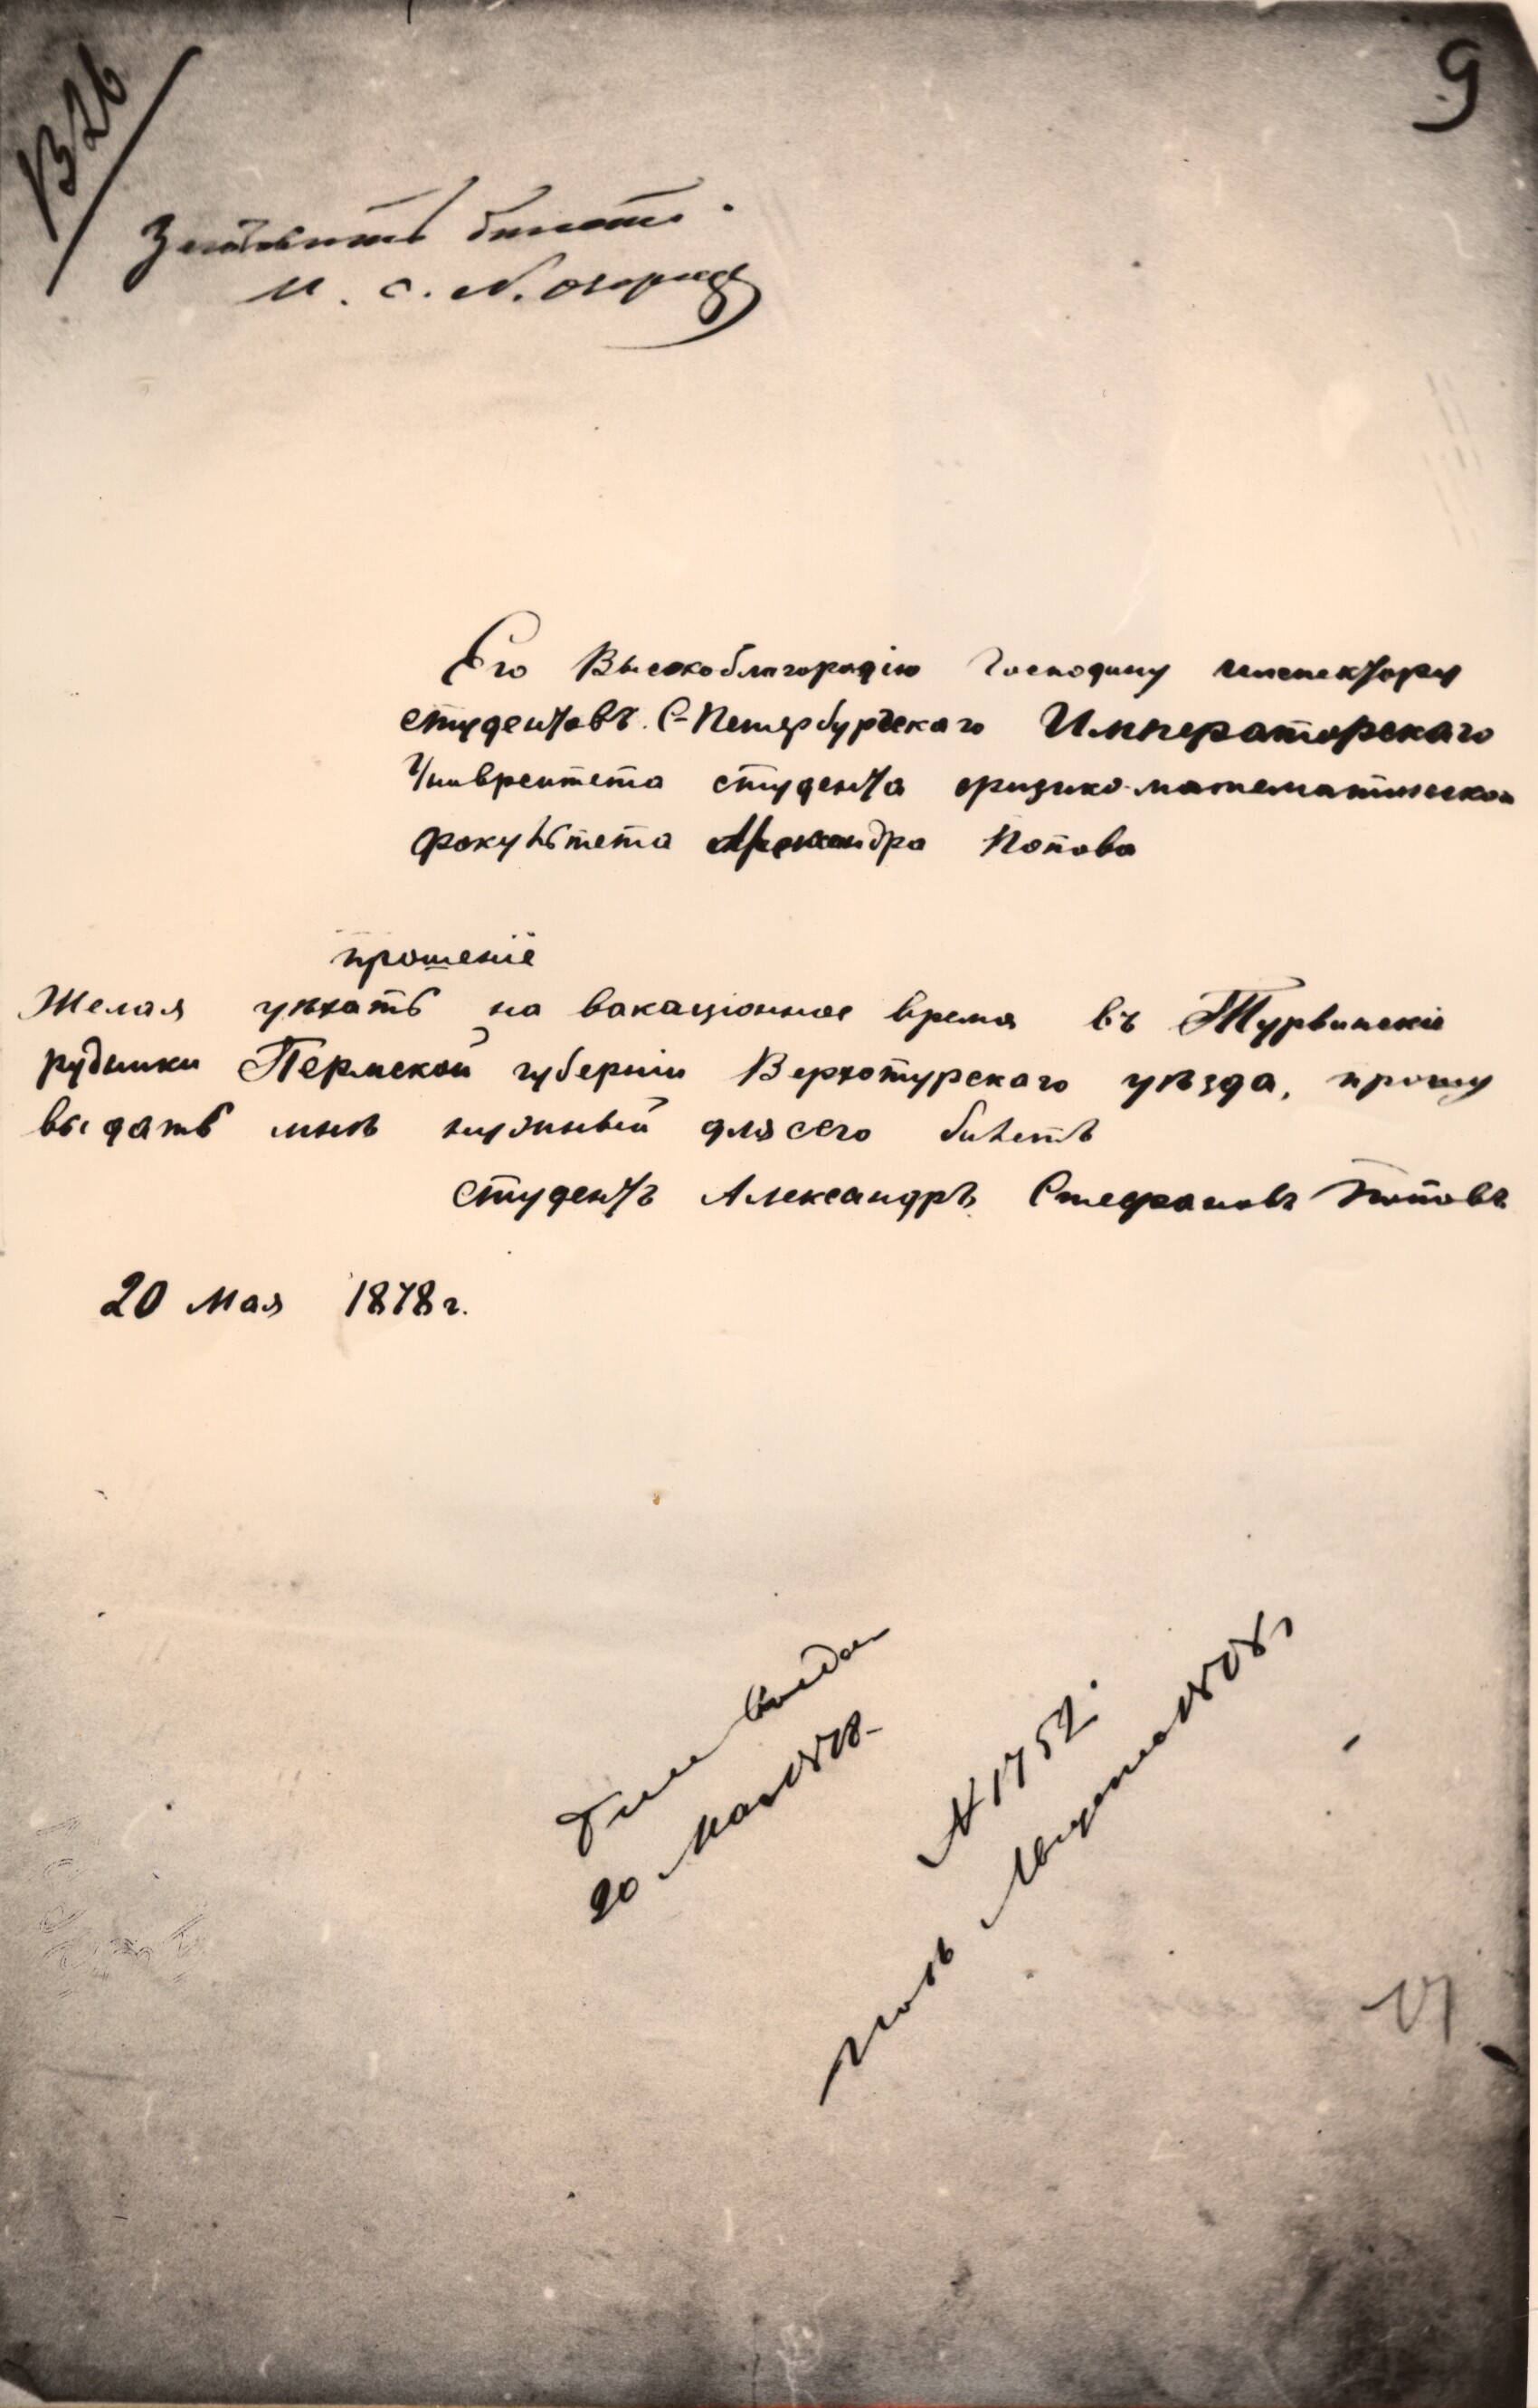 9
Его Высокоблагородію Господину инспектору
студентовъ С-Петербургскаго Императорскаго
Университета студента физико-математическо
факультета Александра Попова
прошеніе
Желая уѣхать на вакаціонное время въ Турьинскіе
рудники Пермской губерніи Верхотурскаго уѣзда, прошу
выдать мнѣ нужный для сего билетъ
студентъ Александръ Стефановъ Поповъ
20 мая 1878 г.
20 Мая 1878
№ 1752.